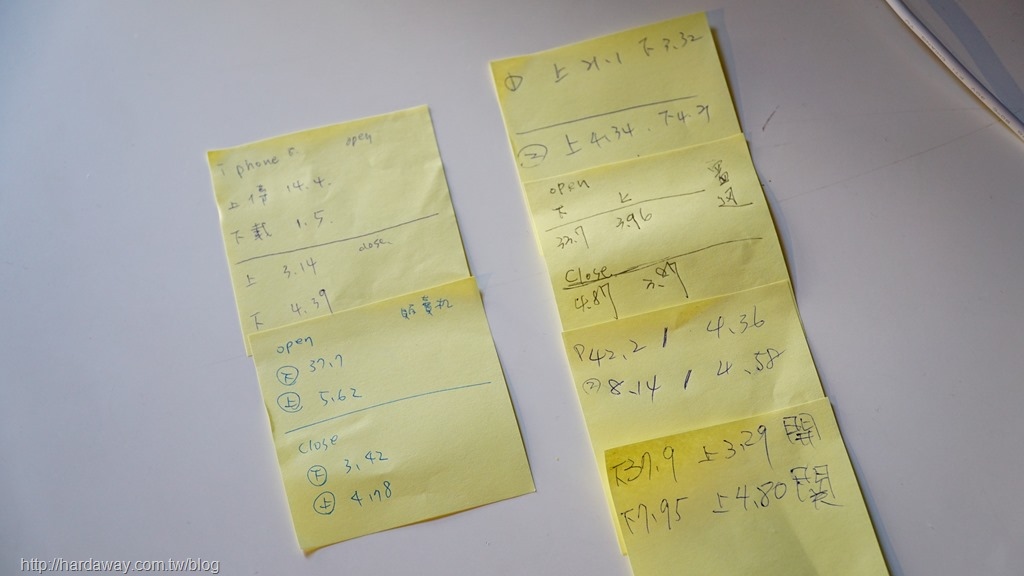 iphone open
上傳 14.4.
下載 1.5.
close
上 3.14
下 4.39
販賣机
open
下 37.7
上 5.62
close
下 3.42
上 4.78
① 上 21.1 下 3.32
② 上 4.34. 下 4.21
open 普通
下 上
33.7 3.96
Close
4.87 3.87
42.2 / 4.36
② 8.14 / 4.58
下37.9 上3.29 開
下7.95 上4.80 関
http://hardaway.com.tw/blog